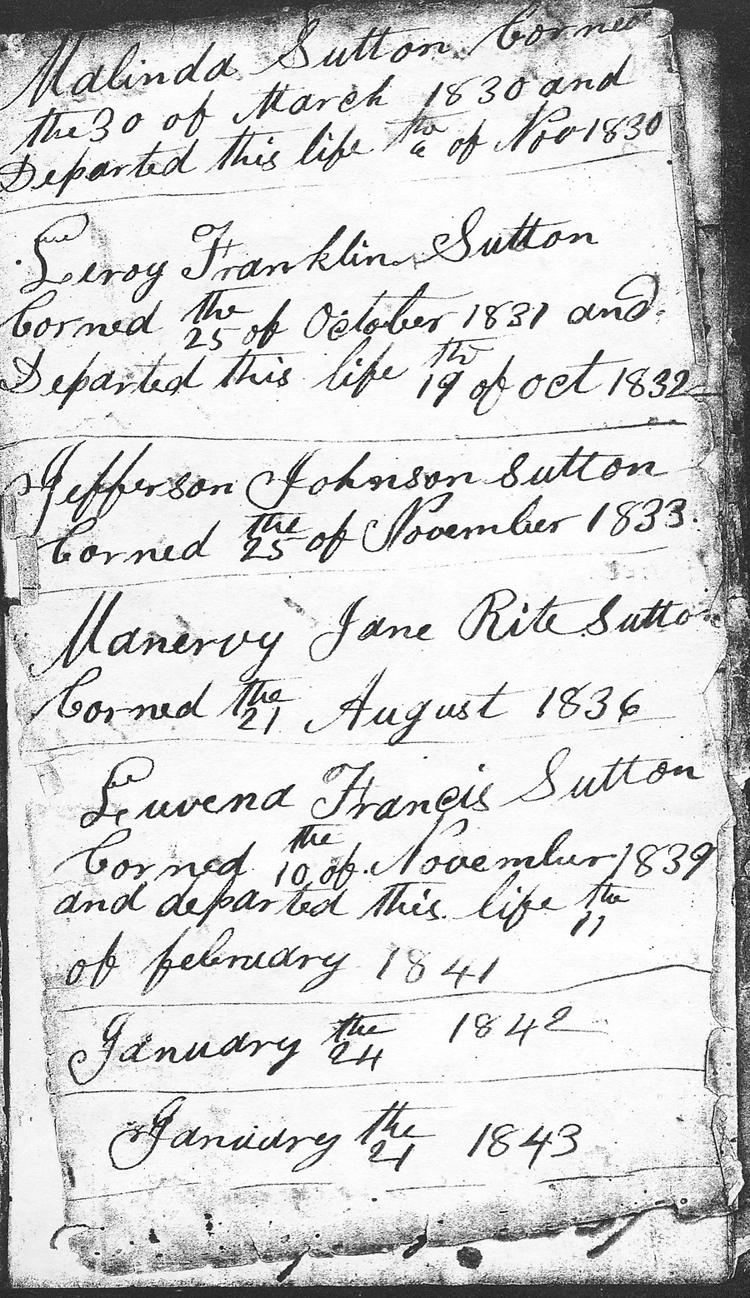 Malinda Sutton borned
the 30 of March 1830 and
Departed this life the 6 of Nov 1830
Leroy Franklin Sutton
borned the 25 of October 1831 and
Departed this life the 19 of oct 1832
Jefferson Johnson Sutton
borned the 25 of November 1833
Manervy Jane Rite Sutton
borned the 21 August 1836
Luvena Francis Sutton
borned the 10 of November 1839
and departed this life the 11
of february 1841
January the 24 1842
January the 21 1843